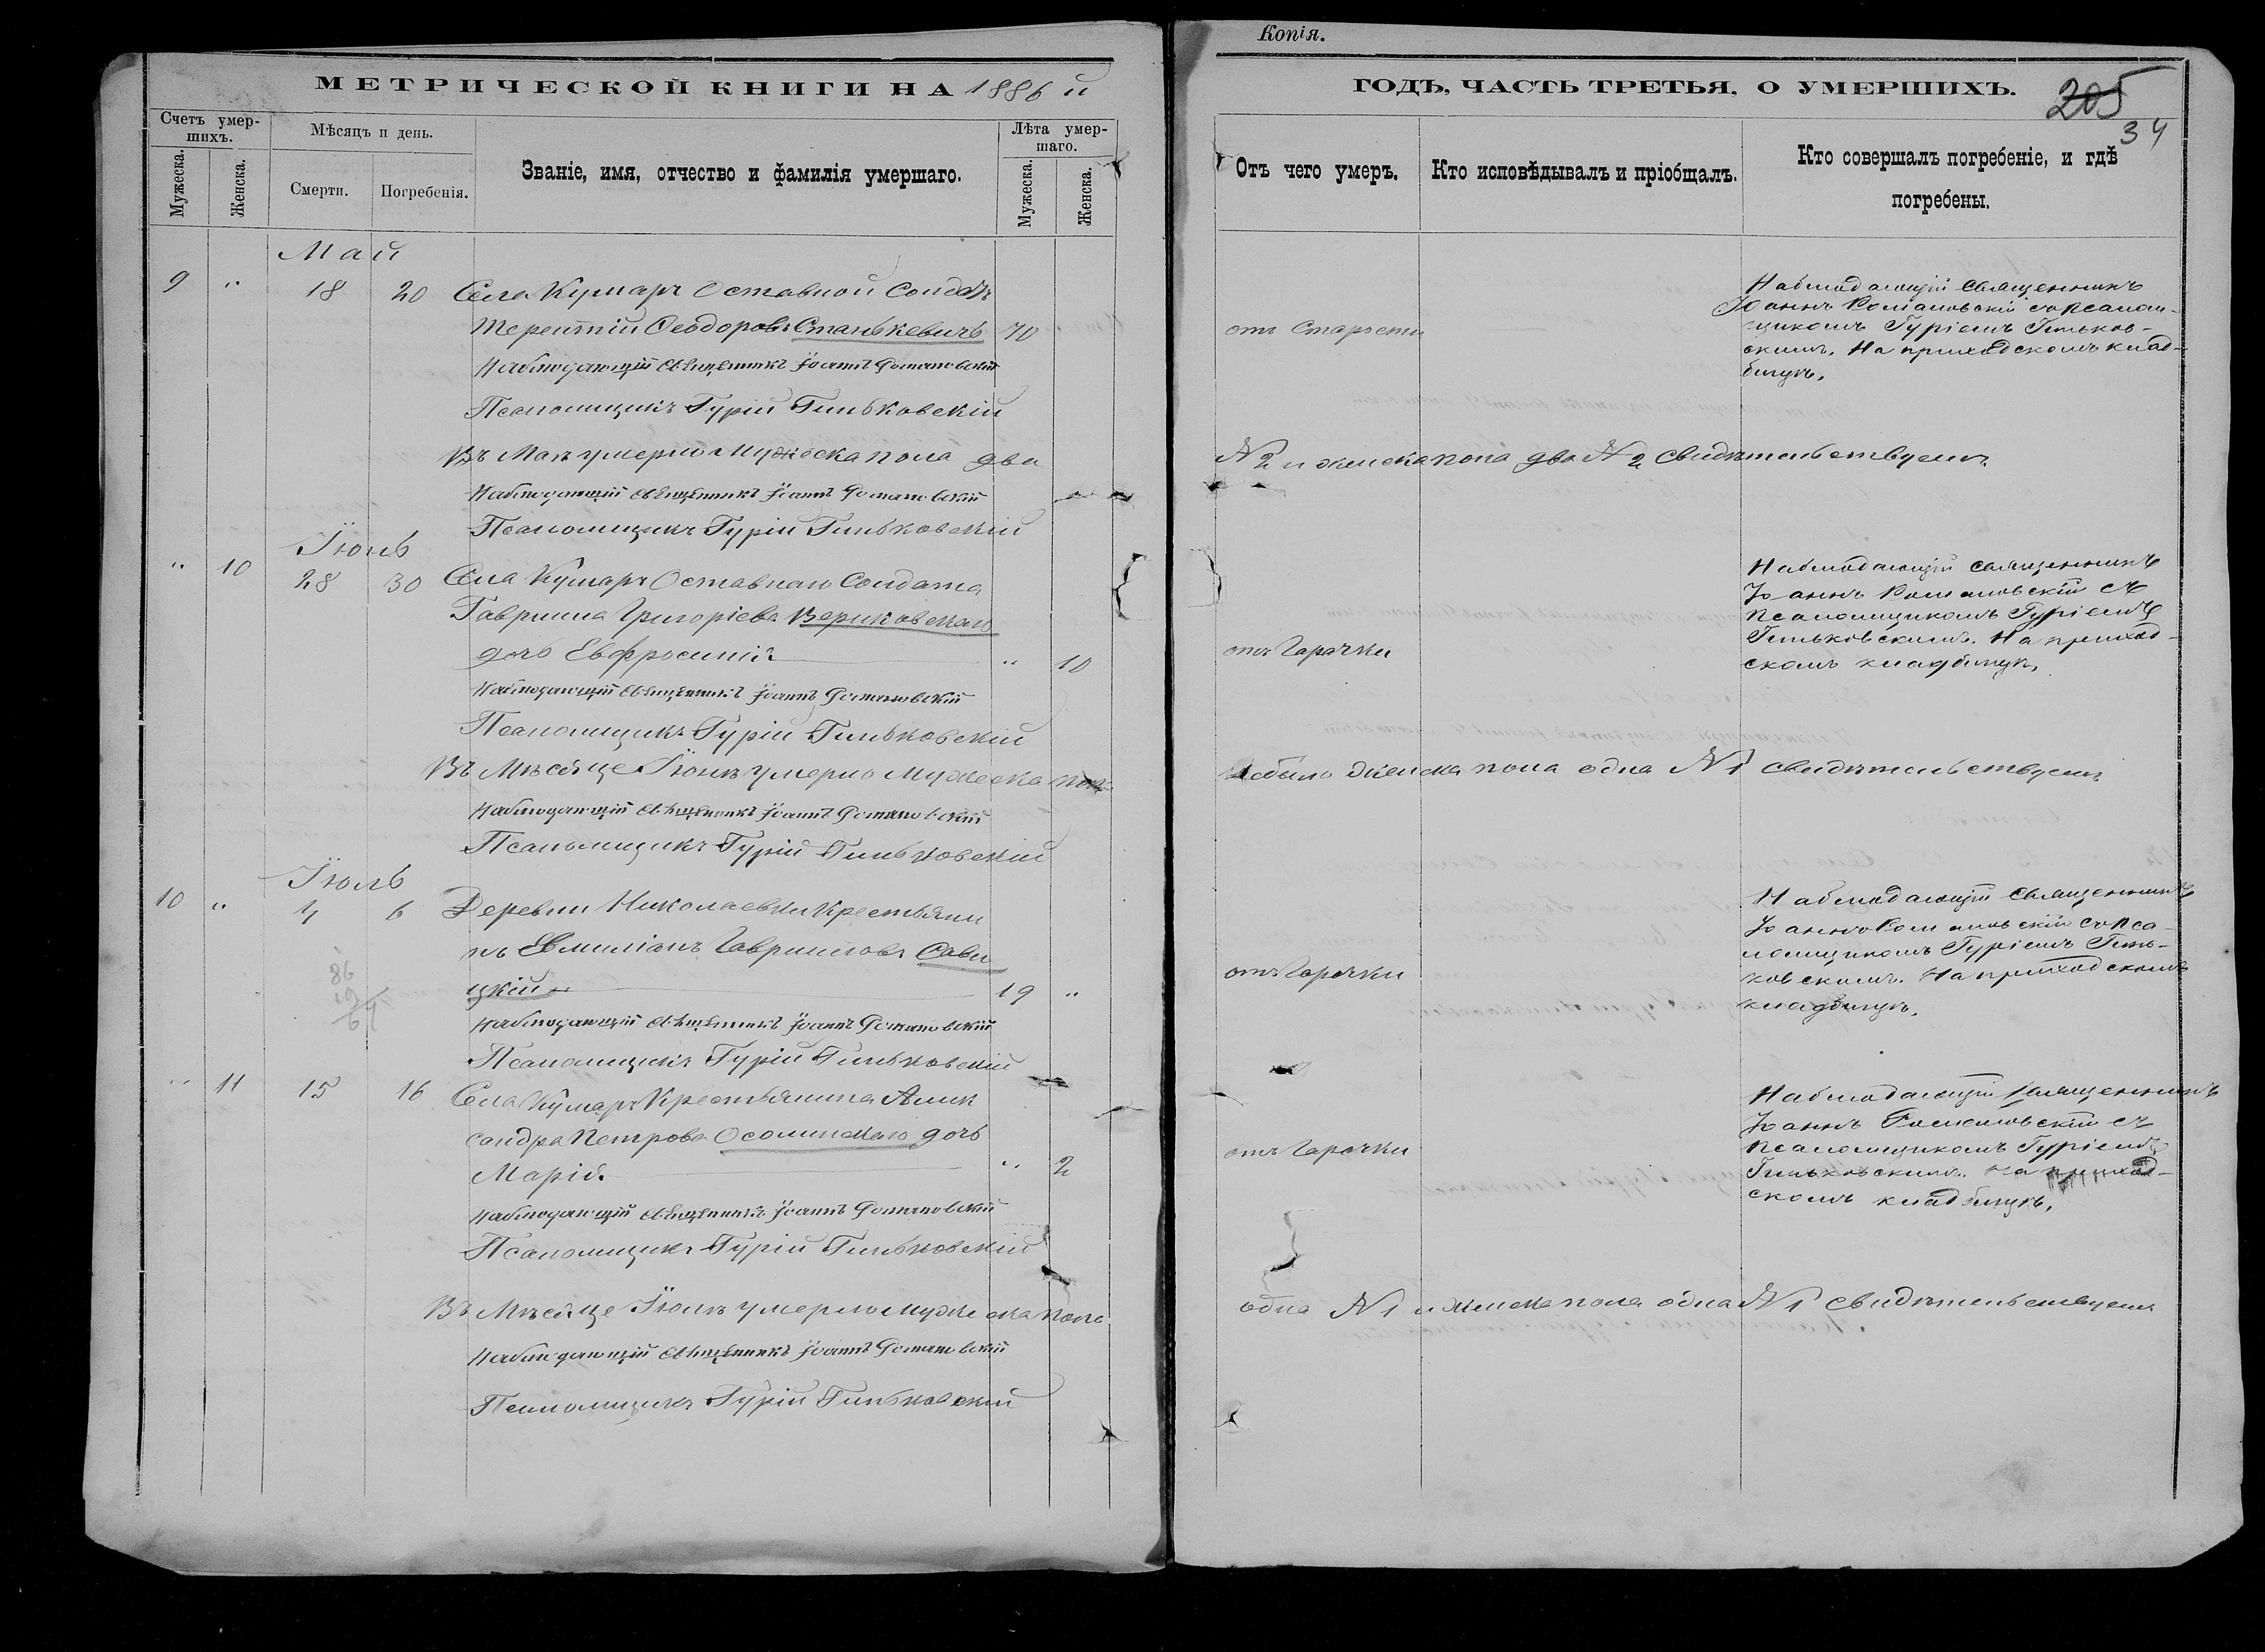 Копія.
МЕТРИЧЕСКОЙ КНИГИ НА 1886 й
ГОДЪ, ЧАСТЬ ТРЕТЬЯ, О УМЕРШИХЪ.
205
34
Счетъ умер-
шихъ.
Мужеска.
Женска.
Мѣсяцъ и день.
Смерти.
Погребенія.
Званіе, имя, отчество и фамилія умершаго.
Лѣта умер-
шаго.
Мужеска.
Женска.
Отъ чего умеръ.
Кто исповѣдывалъ и пріобщалъ.
Кто совершалъ погребеніе, и гдѣ
погребены.
Май
9 " 18 20 Села Кумаръ Оставной Солдатъ
Терентій Феодоровъ Станькевичъ 70
Наблюдающій Священникъ Іоаннъ Романовскій
Псаломщикъ Гурій Гиньковскій
отъ Старости
Наблюдающій Священникъ
Іоаннъ Романовскій съ Псалом-
щикомъ Гуріемъ Гиньков-
скимъ. На приходскомъ клад-
бищѣ.
Въ Маѣ умерло Мужеска пола два
№ 2 и женска пола два № 2 свидѣтельствуемъ
Наблюдающій Священникъ Іоаннъ Романовскій
Псаломщикъ Гурій Гиньковскій
Іюнь
" 10 28 30 Села Кумаръ Оставнаго Солдата
Гавриила Григоріева Вериковскаго
дочь Евфросинія " 10
Наблюдающій Священникъ Іоаннъ Романовскій
Псаломщикъ Гурій Гиньковскій
отъ Горячки
Наблюдающій Священникъ
Іоаннъ Романовскій съ
Псаломщикомъ Гуріемъ
Гиньковскимъ. На приход-
скомъ кладбищѣ.
Въ Мѣсяце Іюнѣ умерло Мужеска пола
небыло Женска пола одна № 1 свидѣтельствуемъ
Наблюдающій Священникъ Іоаннъ Романовскій
Псаломщикъ Гурій Гиньковскій
Іюль
10 " 4 6 Деревни Николаевки Крестьяни
нъ Евмиліанъ Гавриловъ Сави
цкій 19 "
86
19
67
Наблюдающій Священникъ Іоаннъ Романовскій
Псаломщикъ Гурій Гиньковскій
отъ Горячки
Наблюдающій Священникъ
Іоаннъ Романовскій съ Пса-
ломщикомъ Гуріемъ Гинь-
ковскимъ. На приходскомъ
кладбищѣ.
" 11 15 16 Села Кумаръ Крестьянина Алик
сандра Петрова Осолинскаго дочь
Марія " 2
Наблюдающій Священникъ Іоаннъ Романовскій
Псаломщикъ Гурій Гиньковскій
отъ Горячки
Наблюдающій Священникъ
Іоаннъ Романовскій съ
Псаломщикомъ Гуріемъ
Гиньковскимъ. На приход-
скомъ кладбищѣ.
Въ Мѣсяце Іюлѣ умерло мужеска пола
одна № 1 и женска пола одна № 1 свидѣтельствуемъ
Наблюдающій Священникъ Іоаннъ Романовскій
Псаломщикъ Гурій Гиньковскій